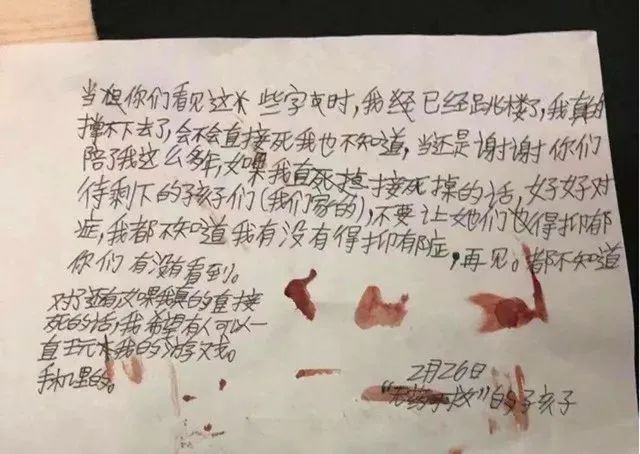 当你们看见这些字时，我已经跳楼了，我真的
撑不下去了，会不会直接死我也不知道，当还是谢谢你们
陪了我这么多年，如果我直接死掉的话，好好对
待剩下的孩子们（我们家的），不要让她们也得抑郁
症，我都不知道我有没有得抑郁症，再见。都不知道
你们有没有看到。
对了还有如果我真的直接
死的话，我希望有人可以一
直玩我的游戏。
手机里的。
2月26日
的子孩子